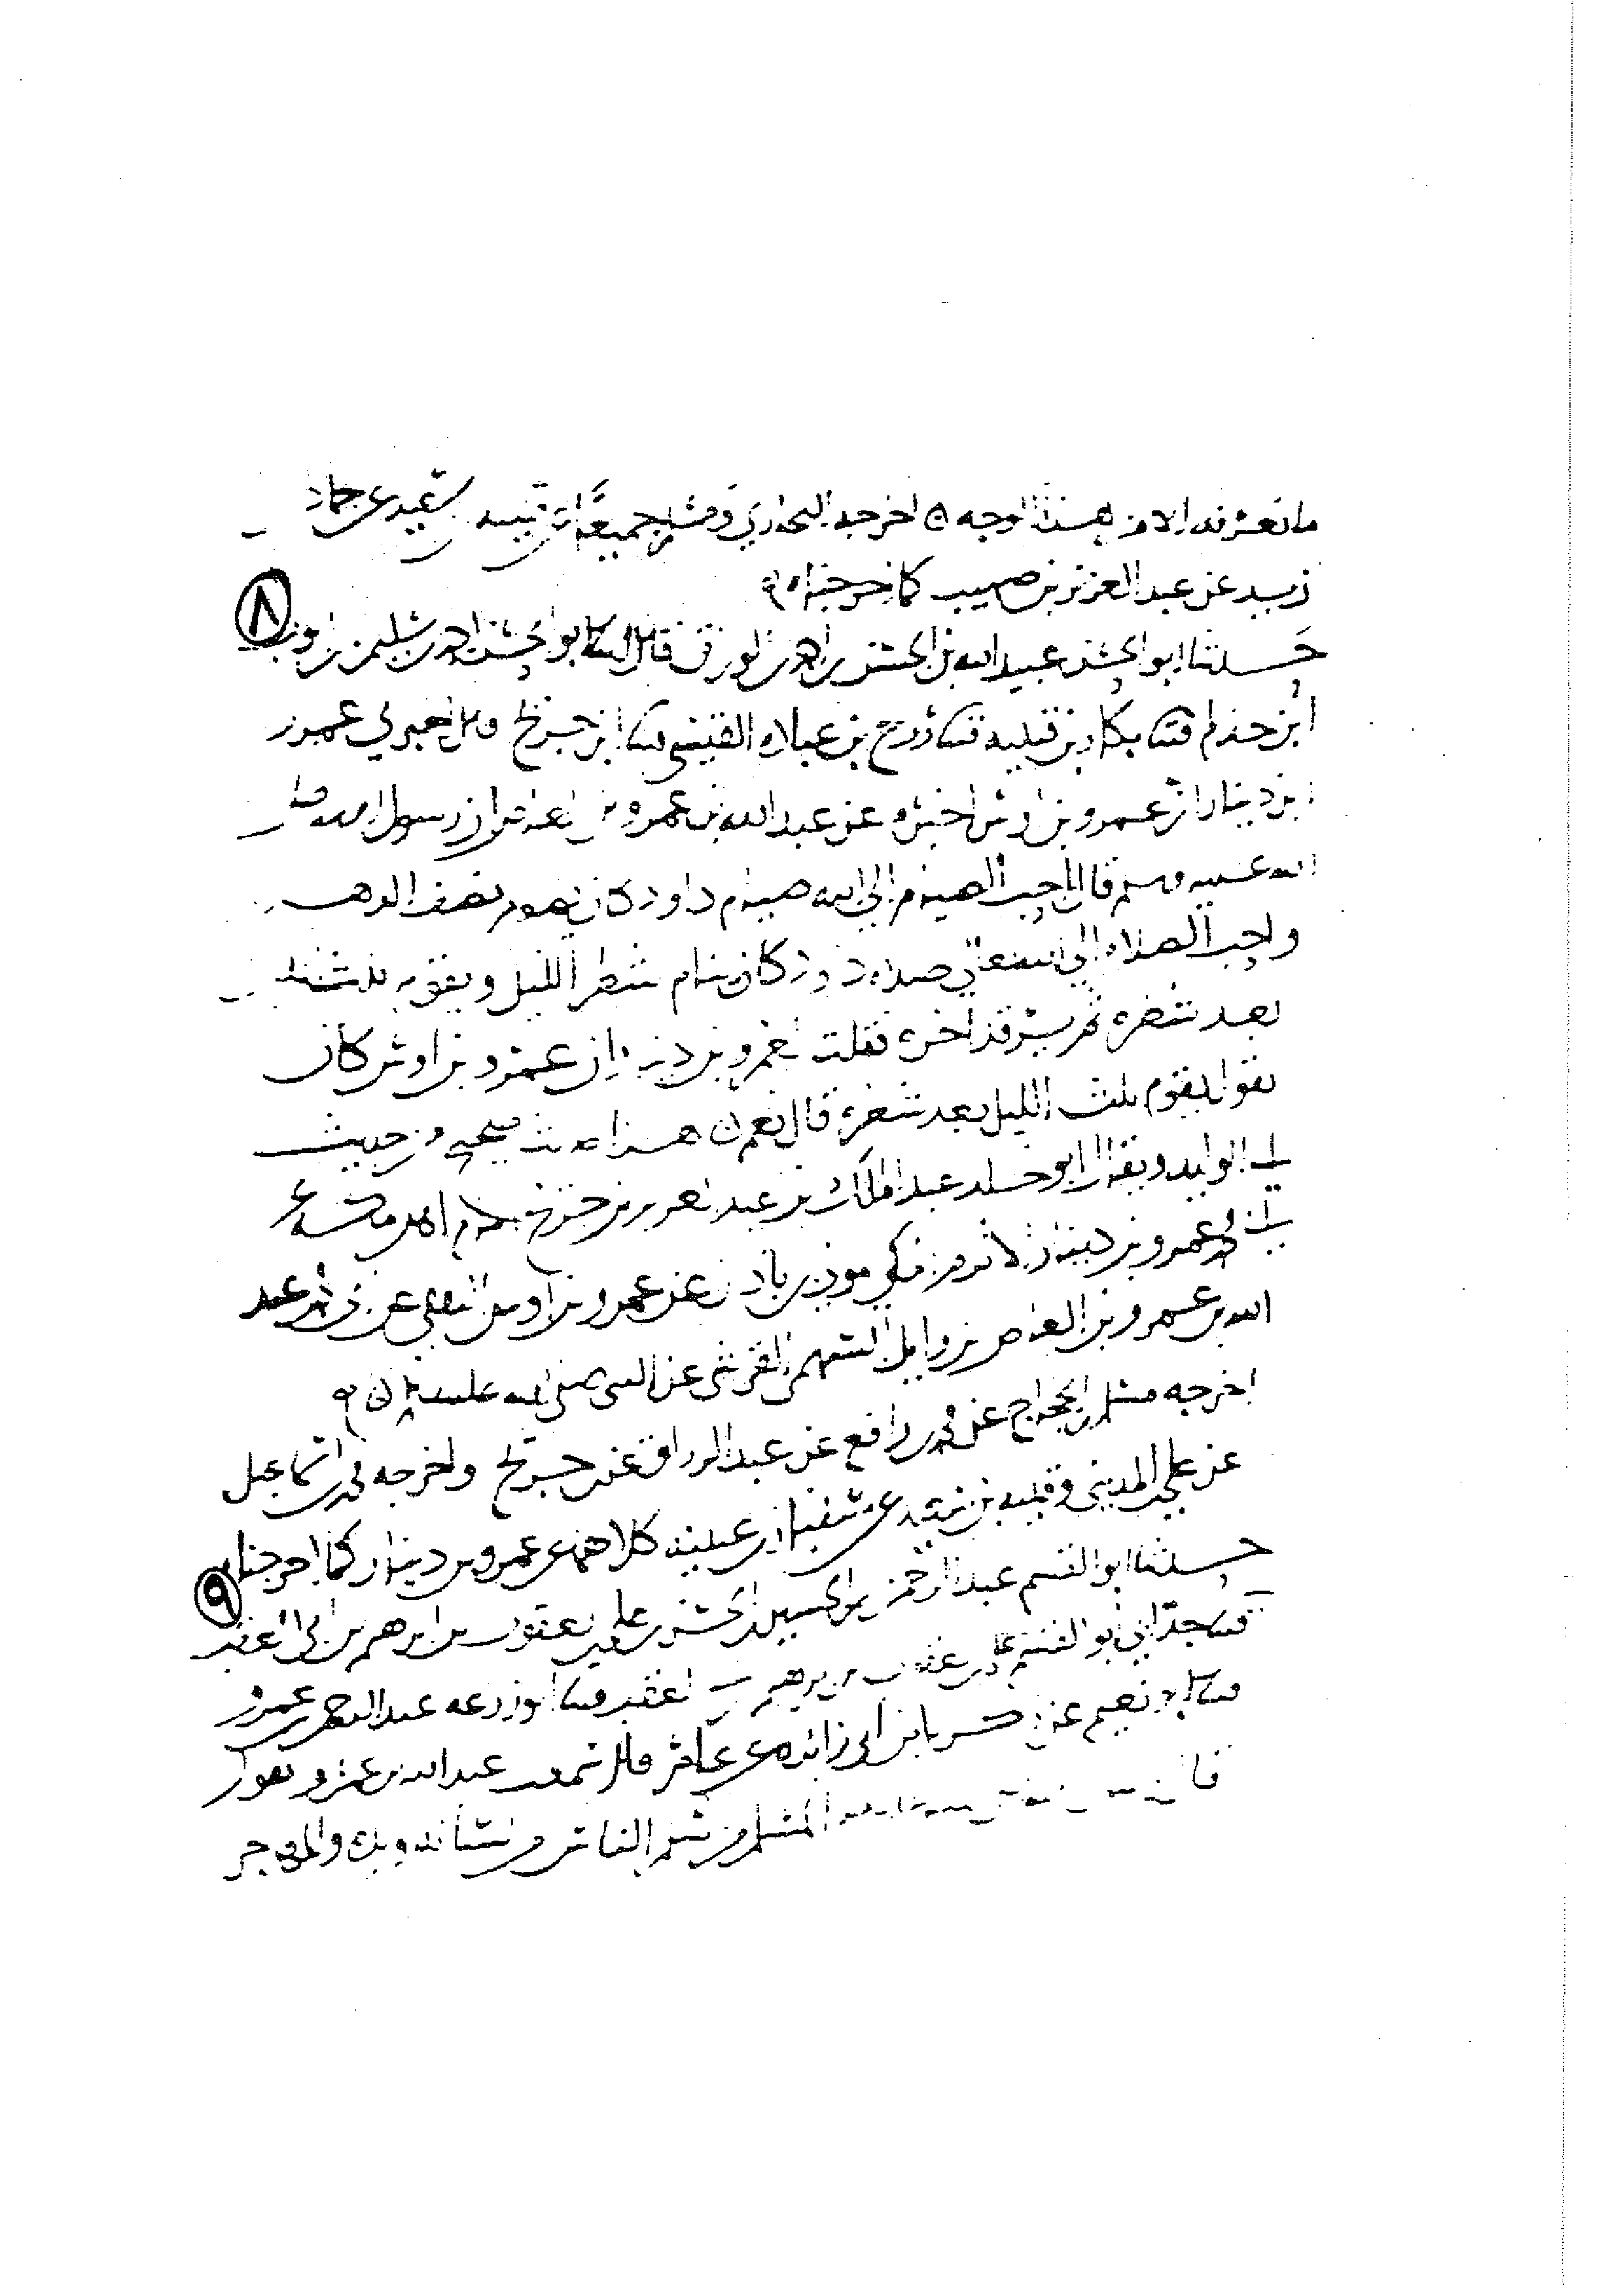 ما نعرفه الا من هذا الوجه ۞ اخرجه البخاري ومسلم جميعا عن قتيبه بن سعيد عن حماد بن
زيد عن عبد العزيز بن صهيب كما اخرجناه
٨
حدثنا ابو الحسن عبيد الله بن الحسن بن احمد الوراق قال ثنا ابو الحسن احمد بن سليمن بن ايوب
ابن حذلم قثنا بكار بن قتيبه قثنا روح بن عباده القيسي ثنا ابن جريج قال اخبرني عمرو
ابن دينار ان عمرو بن اوس اخبره عن عبد الله بن عمرو بن العاص ان رسول الله صلى
الله عليه وسلم قال احب الصيام الى الله صيام داود كان يصوم نصف الدهر
واحب الصلاه الى الله تعالى صلاه داود كان ينام شطر الليل ويقوم ثلث الليل
بعد شطره ثم يرقد اخره فقلت لعمرو بن دينار ان عمرو بن اوس كان
يقول يقوم ثلث الليل بعد شطره قال نعم ۞ هذا حديث صحيح من حديث
ابي الوليد ويقال ابو خالد عبد الملك بن عبد العزيز بن جريج امام اهل مكه عن
ابي محمد عمرو بن دينار الاثرم المكي مولى بن باذان عن عمرو بن اوس الثقفي عن ابي محمد عبد
الله بن عمرو بن العاص بن وايل السهمي القرشي عن النبي صلى الله عليه وسلم ۞
اخرجه مسلم بن الحجاج عن محمد بن رافع عن عبد الرزاق عن بن جريج واخرجه محمد بن اسماعيل
عن علي المديني وقتيبه بن سعيد عن سفيان بن عيينه كلاهما عن عمرو بن دينار كما اخرجناه
٩
حدثنا ابو القسم عبد الرحمن بن الحسين بن الحسن بن علي بن يعقوب بن ابرهيم بن ابي العقب
قثنا جد ابي ابو القسم علي بن يعقوب بن ابرهيم بن ابي العقب قثنا ابو زرعه عبد الرحمن بن عمرو
قثنا ابو نعيم عن زكريا بن ابي زائده عن عامر قال سمعت عبد الله بن عمرو يقول
قال المسلم من سلم الناس من لسانه ويده والمهاجر